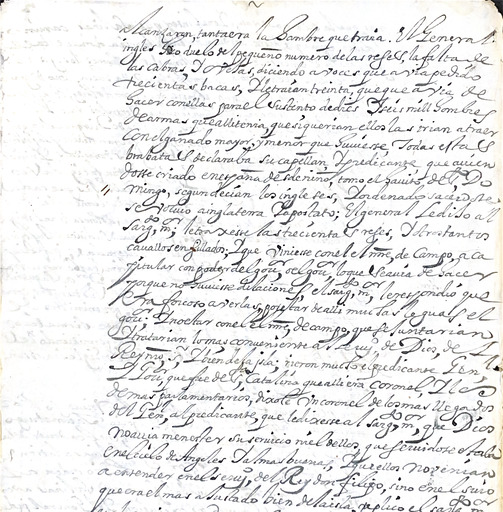 alcansaren, tanta era la hambre que traia. El General
ingles se duelo del pequeño numero de las reses, la falta de
las cabras, y obejas, diciendo a voces que avia pedido
trecientas bacas, y le traian treinta, que que avia de
hacer con ellas para el sustento de dies y seis mill hombres
de armas que alli tenia, que si querian ellos las irian a traer
con el ganado mayor, y menor que huviesse. Todas estas
bombatas declaraba su capellan, y predicante que avien
dosse criado en españa desde niño, tomo el havito de Sto. Do
mingo, segun decian los ingleses, y ordenado sacerdote
se volvio a inglaterra y apostato; el general le dijo al
sargto. mr. le traxesse las trecientas reses, y otros tantos
cavallos ensillados, y que viniesse con el mre. de campo, a ca
pitular con poder del gour. o el gour. lo que se avia de hacer
porque no huviesse dilaciones, el sargto. mr. le respondio que
era forcoso averlas, por estar de alli muy las leguas el
gour. y no estar con el mre. de campo, que se juntarian
y tratarian lo mas conveniente al servo. de Dios, de el
Reyno, y bien de la isla; rieron mucho el predicante, Gen.
y Gour. que fue de Sta. Catalina que alli era coronel, y los
demas parlamentarios, dixole un coronel de los mas llegados
del Gen. al predicante, que le dixesse al sargto. mr. que Dios
no avia menester su servicio ni el de ellos, que servido se estaba
en el cielo de Angeles y almas buenas, y que ellos no venian
a entender en el servo. del Rey don felipe, sino en el suio
que era el mas ajustado bien de la isla, replico el sargto. mr.